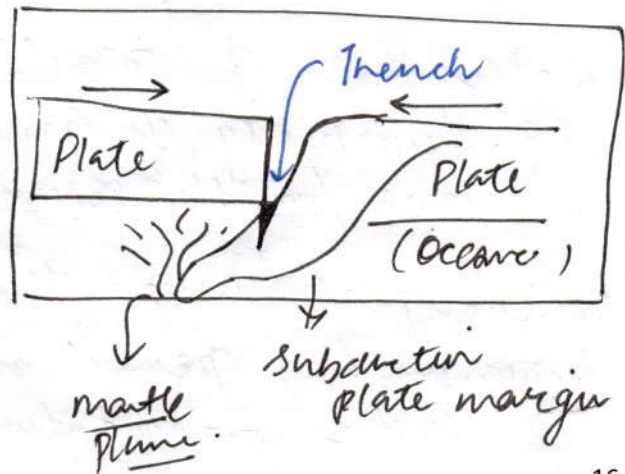 Trench
Plate
Plate
(Oceanic)
mantle
plume.
subduction
plate margin
16